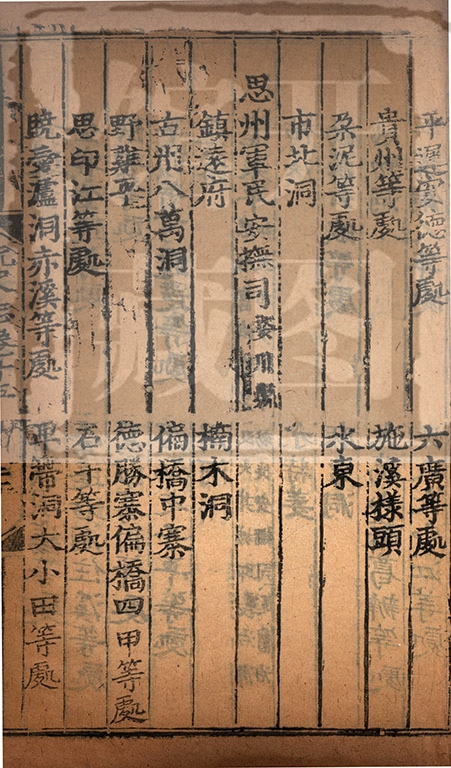 平遲安德等處 六廣等處
貴州等處 施溪樣頭
朶泥等處 水東
市北洞
思州軍民安撫司 婺川縣
鎮遠府 楠木洞
古州八萬洞 偏橋中寨
野雞平 德勝寨偏橋四甲等處
思印江等處 石千等處
曉愛瀘洞赤溪等處 卑帶洞大小田等處